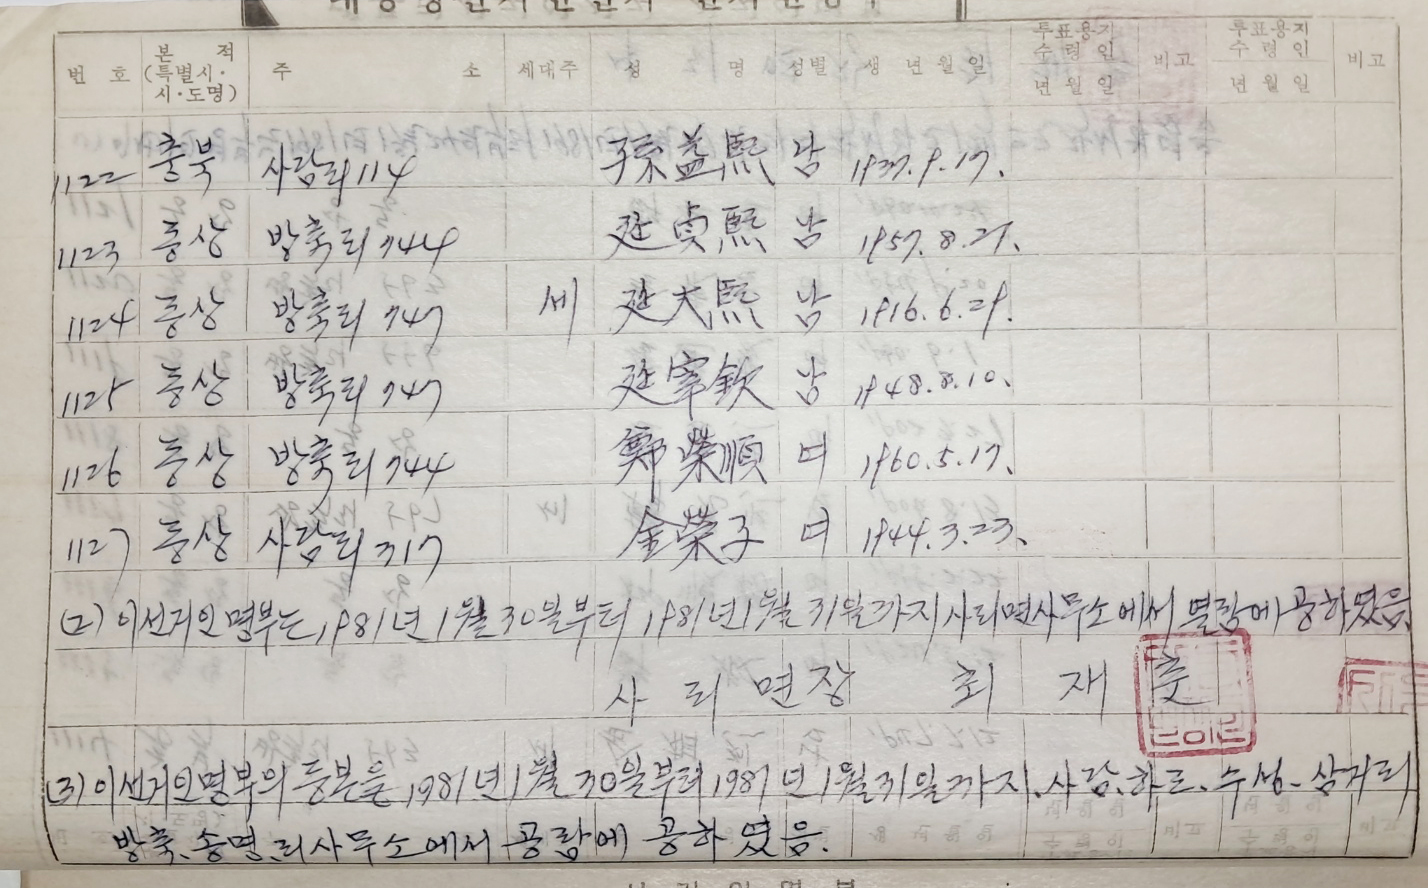 번 호 본 적 (특별시·시·도명) 주 소 세대주 성 명 성별 생 년 월 일 투표용지 수 령 인 년 월 일 비고 투표용지 수 령 인 년 월 일 비고
1122 충북 사담리 114 孫益熙 남 1937.9.17.
1123 동상 방축리 744 延貞熙 남 1957.8.21.
1124 동상 방축리 747 세 延大熙 남 1916.6.29.
1125 동상 방축리 747 延宰欽 남 1948.8.10.
1126 동상 방축리 744 鄭榮順 여 1960.5.17.
1127 동상 사담리 317 金榮子 여 1944.3.23.
(2) 이 선거인명부는 1981년 1월 30일부터 1981년 1월 31일까지 사리면사무소에서 열람에 공하였음.
사 리 면장 최 재
(3) 이 선거인명부의 등본을 1981년 1월 30일부터 1981년 1월 31일까지, 사담, 하도, 수성, 삼거리
방축, 송명, 리사무소에서 공람에 공하였음.